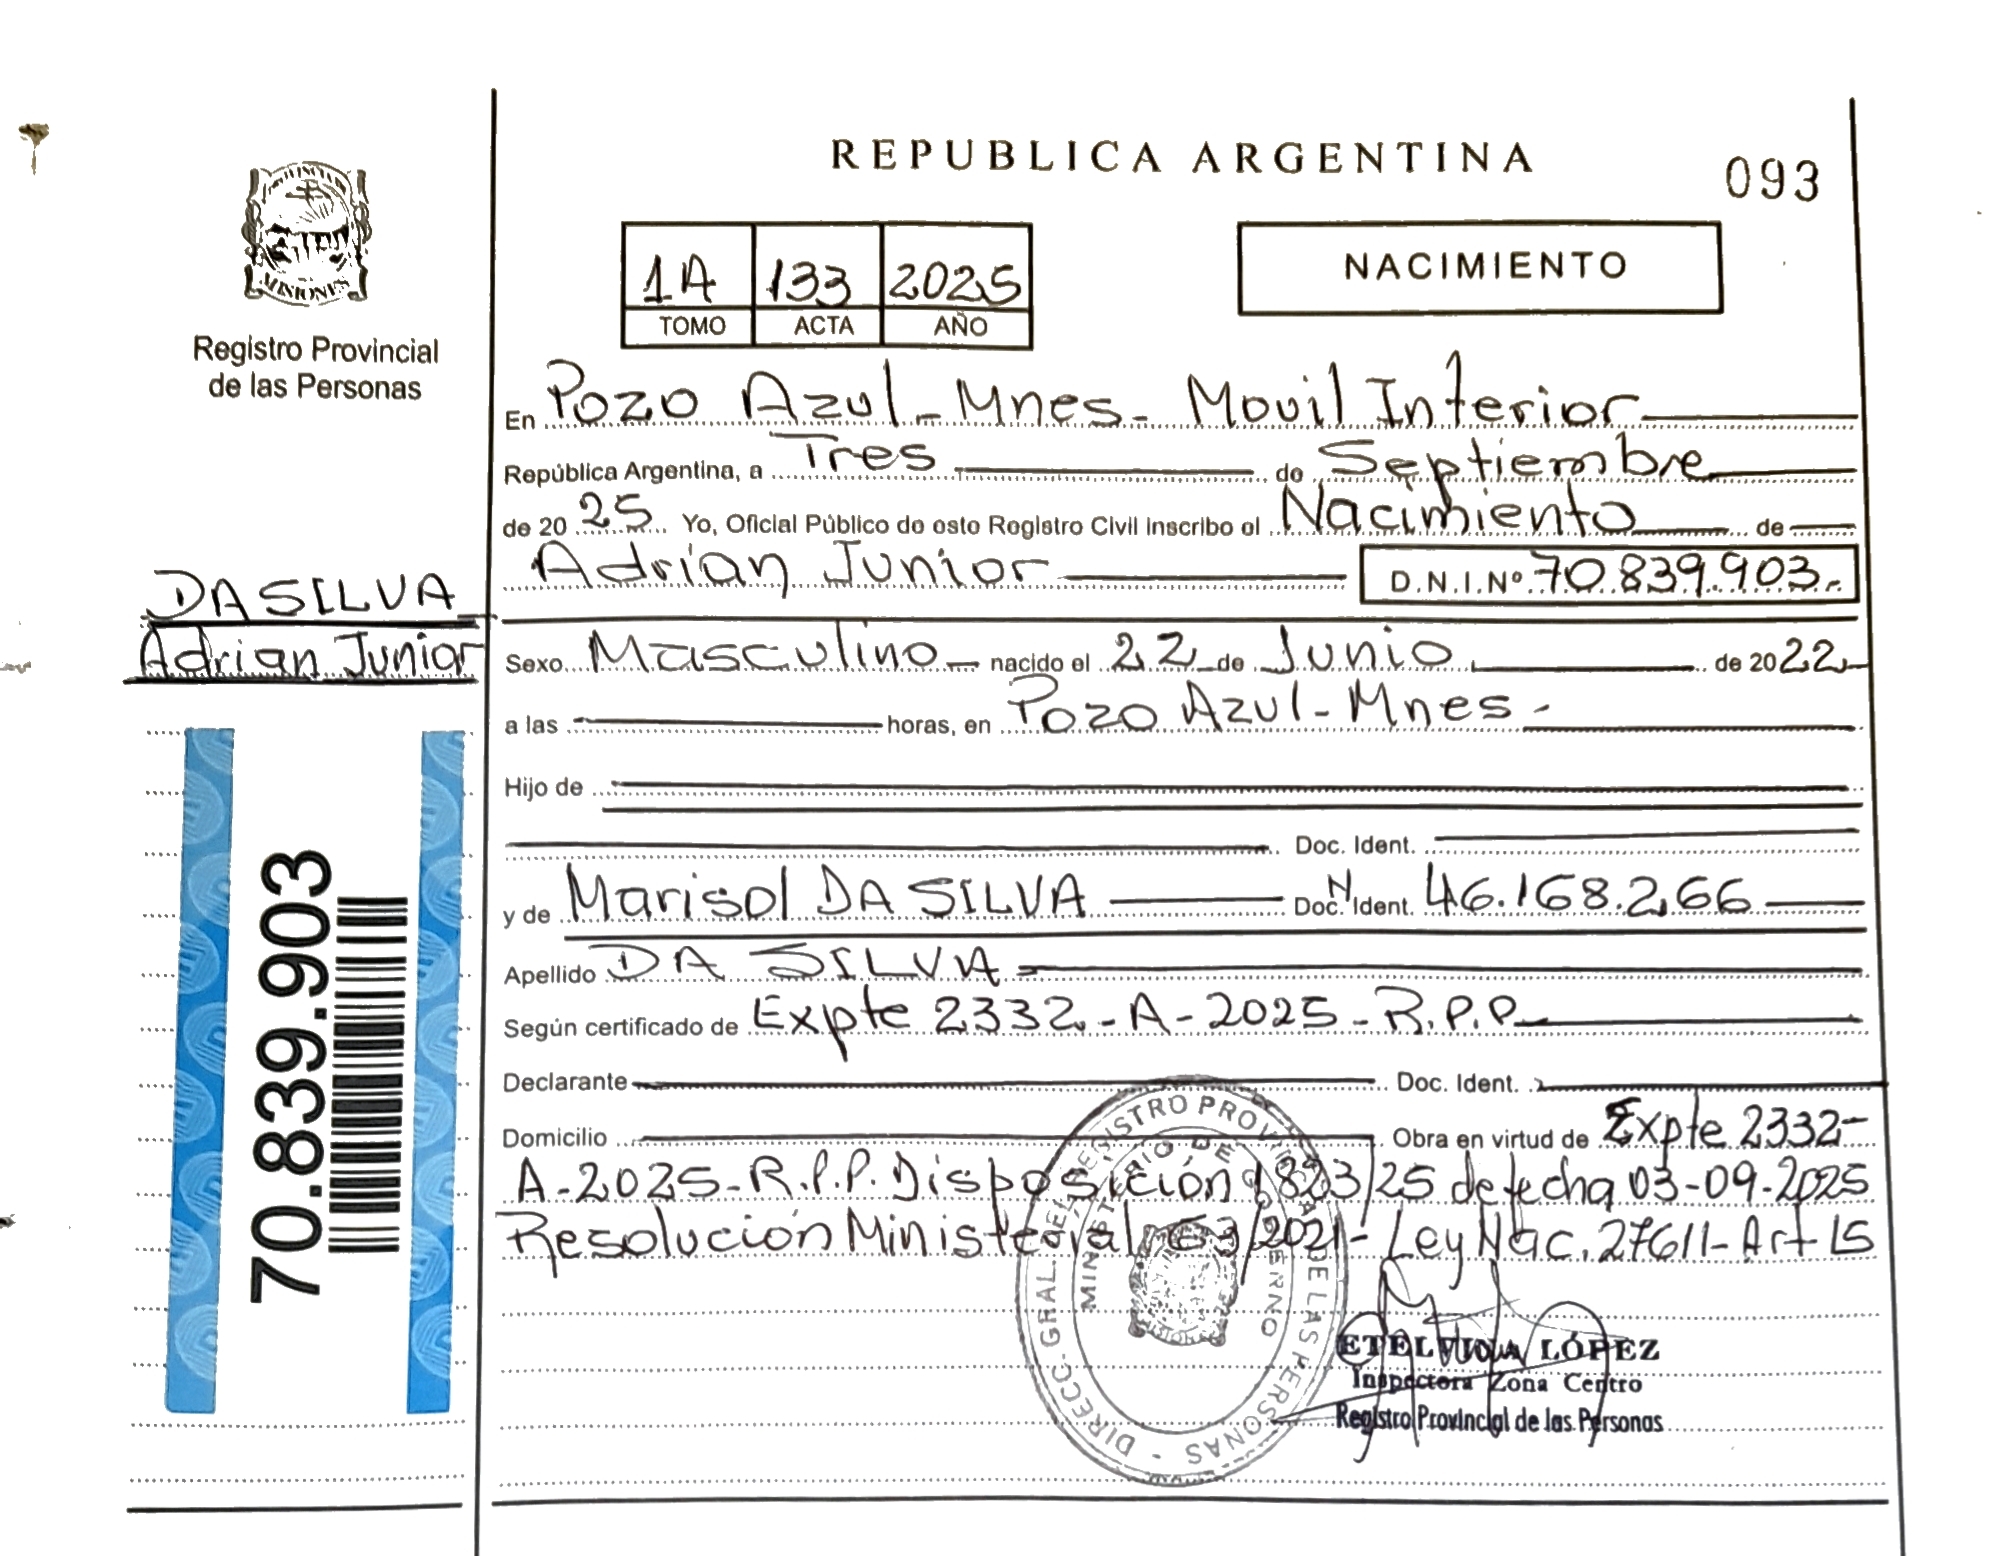 REPUBLICA ARGENTINA
093
PROVINCIA DE
MISIONES
Registro Provincial
de las Personas
1A 133 2025
TOMO ACTA AÑO
NACIMIENTO
En Pozo Azul - Mnes - Movil Interior
República Argentina, a Tres de Septiembre
de 20 25 Yo, Oficial Público de este Registro Civil Inscribo el Nacimiento de
Adrian Junior D.N.I.Nº 70.839.903.-
DA SILVA
Adrian Junior
Sexo Masculino nacido el 22 de Junio de 2022
a las horas, en Pozo Azul - Mnes -
Hijo de
Doc. Ident.
y de Marisol DA SILVA Doc. Ident. N 46.168.266
Apellido DA SILVA
Según certificado de Expte 2332 - A - 2025 - R.P.P
Declarante Doc. Ident.
Domicilio Obra en virtud de Expte 2332-
A-2025-R.P.P. Disposición 1823/25 de fecha 03-09-2025
Resolución Ministerial 63/2021 - Ley Nac. 27611 - Art 15
70.839.903
DIRECC. GRAL. DEL REGISTRO PROVINCIAL DE LAS PERSONAS -
MINISTERIO DE GOBIERNO
ETELVINA LÓPEZ
Inspectora Zona Centro
Registro Provincial de las Personas